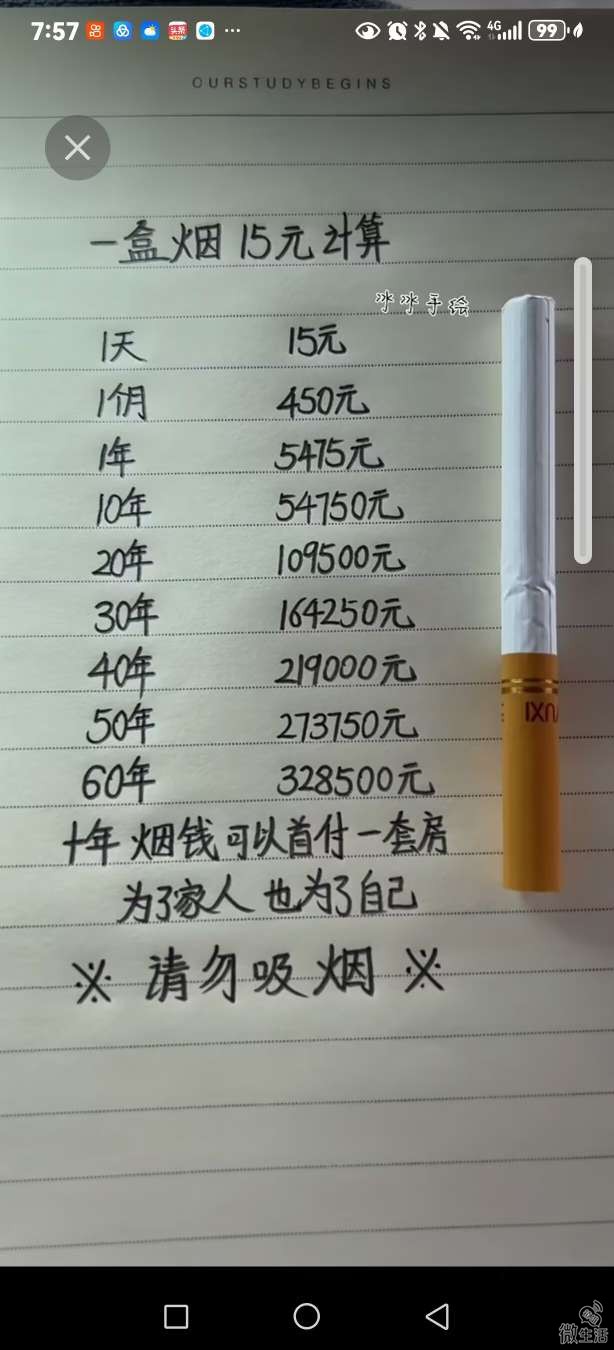 7:57 头条 ... 4G 99
OURSTUDYBEGINS
一盒烟15元计算
冰冰手绘
1天 15元
1个月 450元
1年 5475元
10年 54750元
20年 109500元
30年 164250元
40年 219000元
50年 273750元
60年 328500元
十年烟钱可以首付一套房
为了家人也为了自己
※ 请勿吸烟 ※
YUXI
微生活